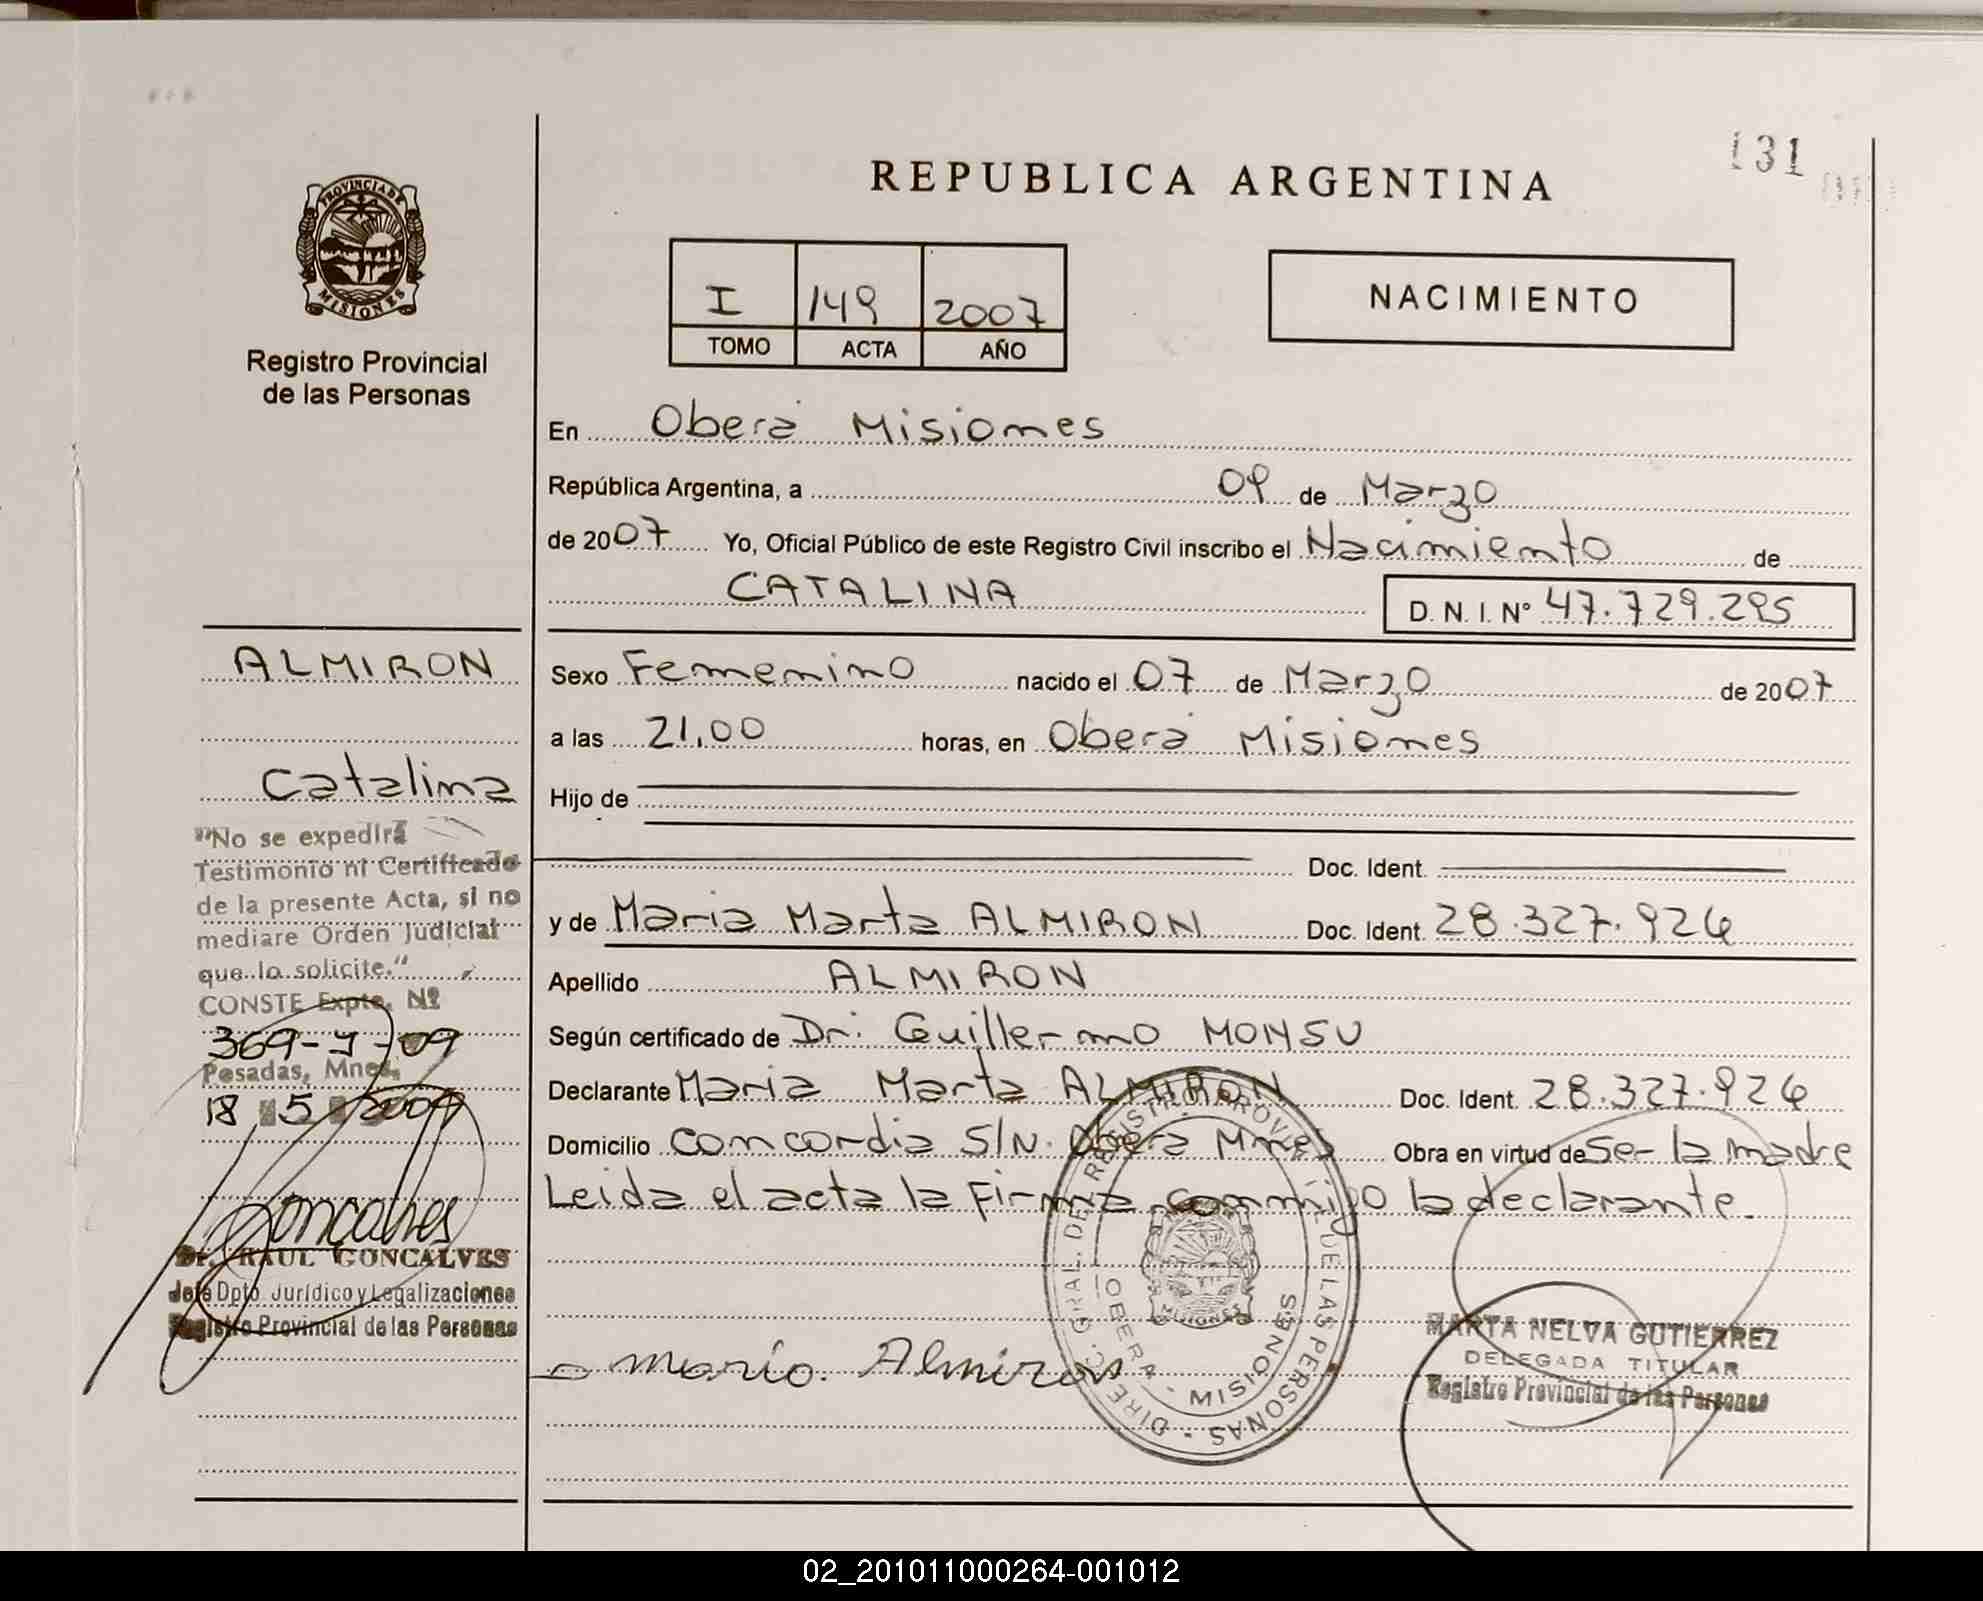 131
REPUBLICA ARGENTINA
PROVINCIA DE
MISIONES
Registro Provincial
de las Personas
I 149 2007
TOMO ACTA AÑO
NACIMIENTO
En Oberá Misiones
República Argentina, a 09 de Marzo
de 2007 Yo, Oficial Público de este Registro Civil inscribo el Nacimiento de
CATALINA D. N. I. Nº 47.729.295
ALMIRON
Catalina
"No se expedirá
Testimonio ni Certificado
de la presente Acta, si no
mediare Orden Judicial
que lo solicite."
CONSTE Expte. Nº
369-Y-09
Posadas, Mnes.
18 5 2009
Goncalves
Dr. RAUL GONCALVES
Jefe Dpto. Jurídico y Legalizaciones
Registro Provincial de las Personas
Sexo Femenino nacido el 07 de Marzo de 2007
a las 21,00 horas, en Oberá Misiones
Hijo de
Doc. Ident.
y de Maria Marta ALMIRON Doc. Ident. 28.327.926
Apellido ALMIRON
Según certificado de Dr. Guillermo MONSU
Declarante Maria Marta ALMIRON Doc. Ident. 28.327.926
Domicilio Concordia S/N. Oberá Mnes Obra en virtud de Ser la madre
Leida el acta la firma conmigo la declarante.
DIREC. GRAL. DEL REGISTRO PROVINCIAL DE LAS PERSONAS -
OBERA - MISIONES
MISIONES
Maria. Almiron
MARTA NELVA GUTIERREZ
DELEGADA TITULAR
Registro Provincial de las Personas
02_201011000264-001012